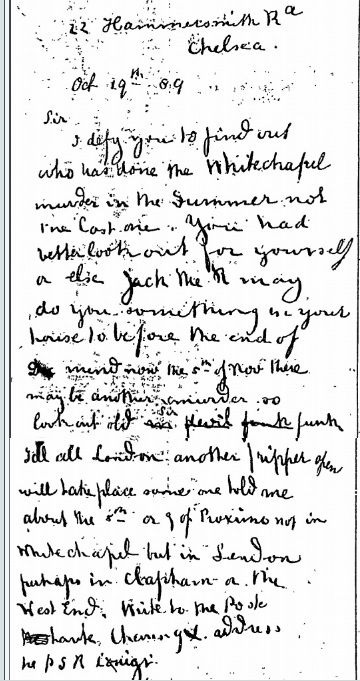 22 Hammersmith Rd
Chelsea.
Oct 19th 89
Sir
I defy you to find out
who has done the Whitechapel
murder in the Summer not
the last one. You had
better look out for yourself
or else Jack the R may
do you something in your
house to before the end of
mind now the 5th of Nov there
may be another murder so
look out old Sir funk
Tell all London another ripper open
will take place some one told me
about the 8th or 9 of Proximo not in
Whitechapel but in London
perhaps in Clapham or the
West End. Write to the Poste
address
P S R